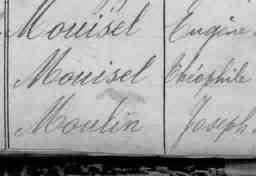 Mouisel Eugène
Mouisel Théophile
Moulin Joseph